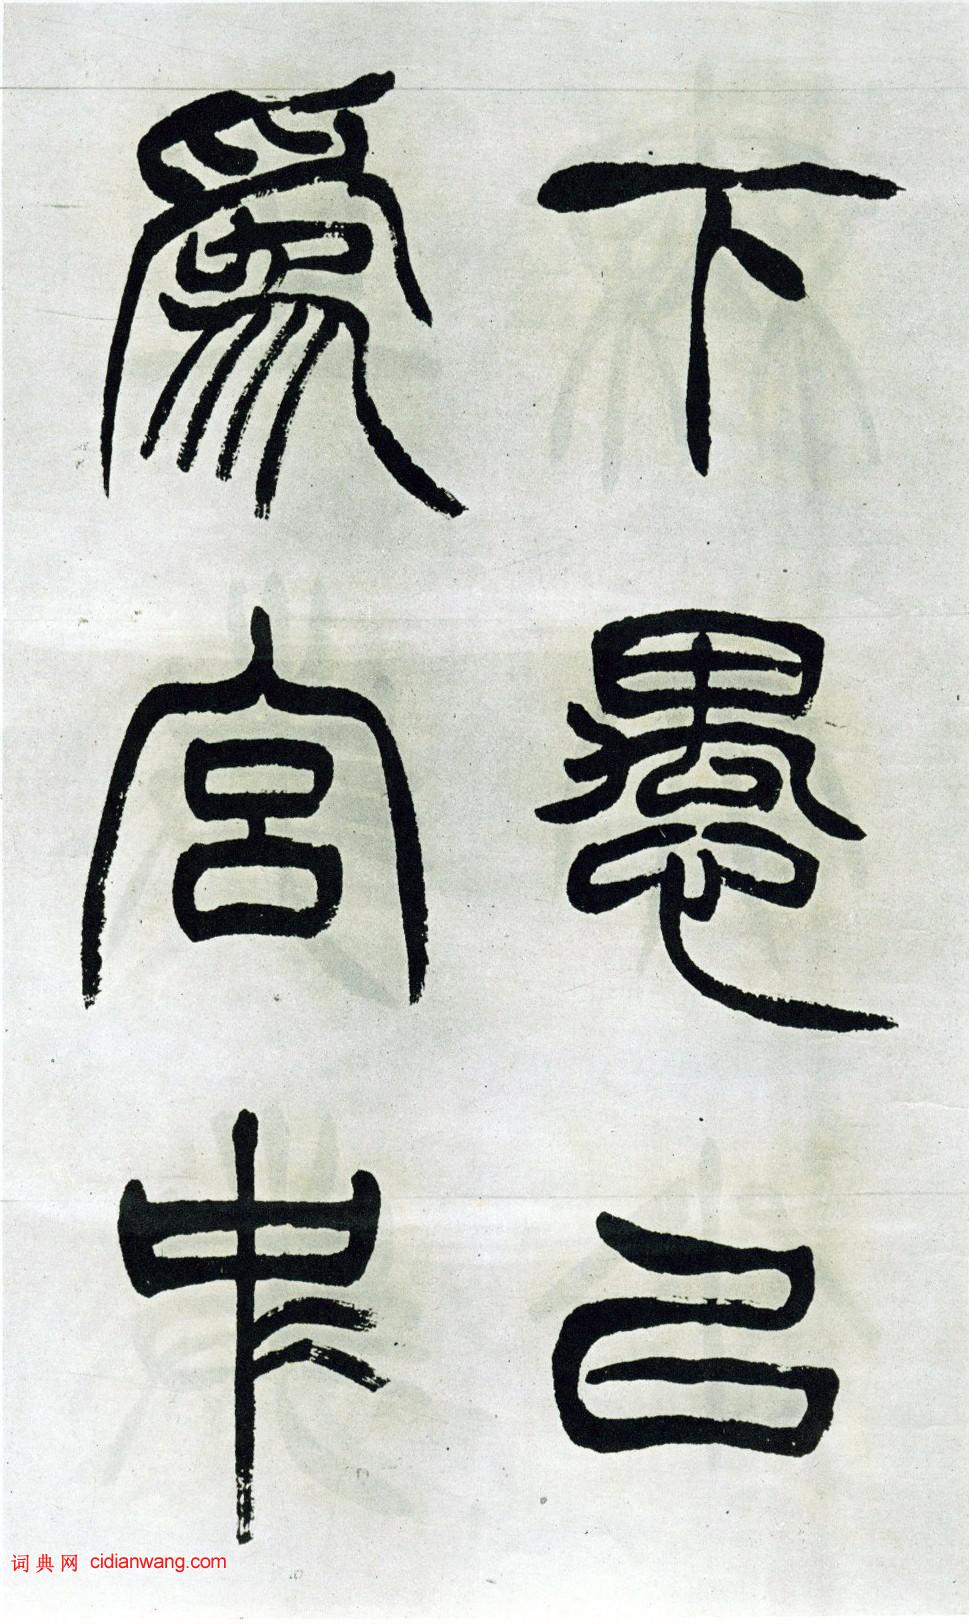 下愚㠯
爲宮中
词典网 cidianwang.com